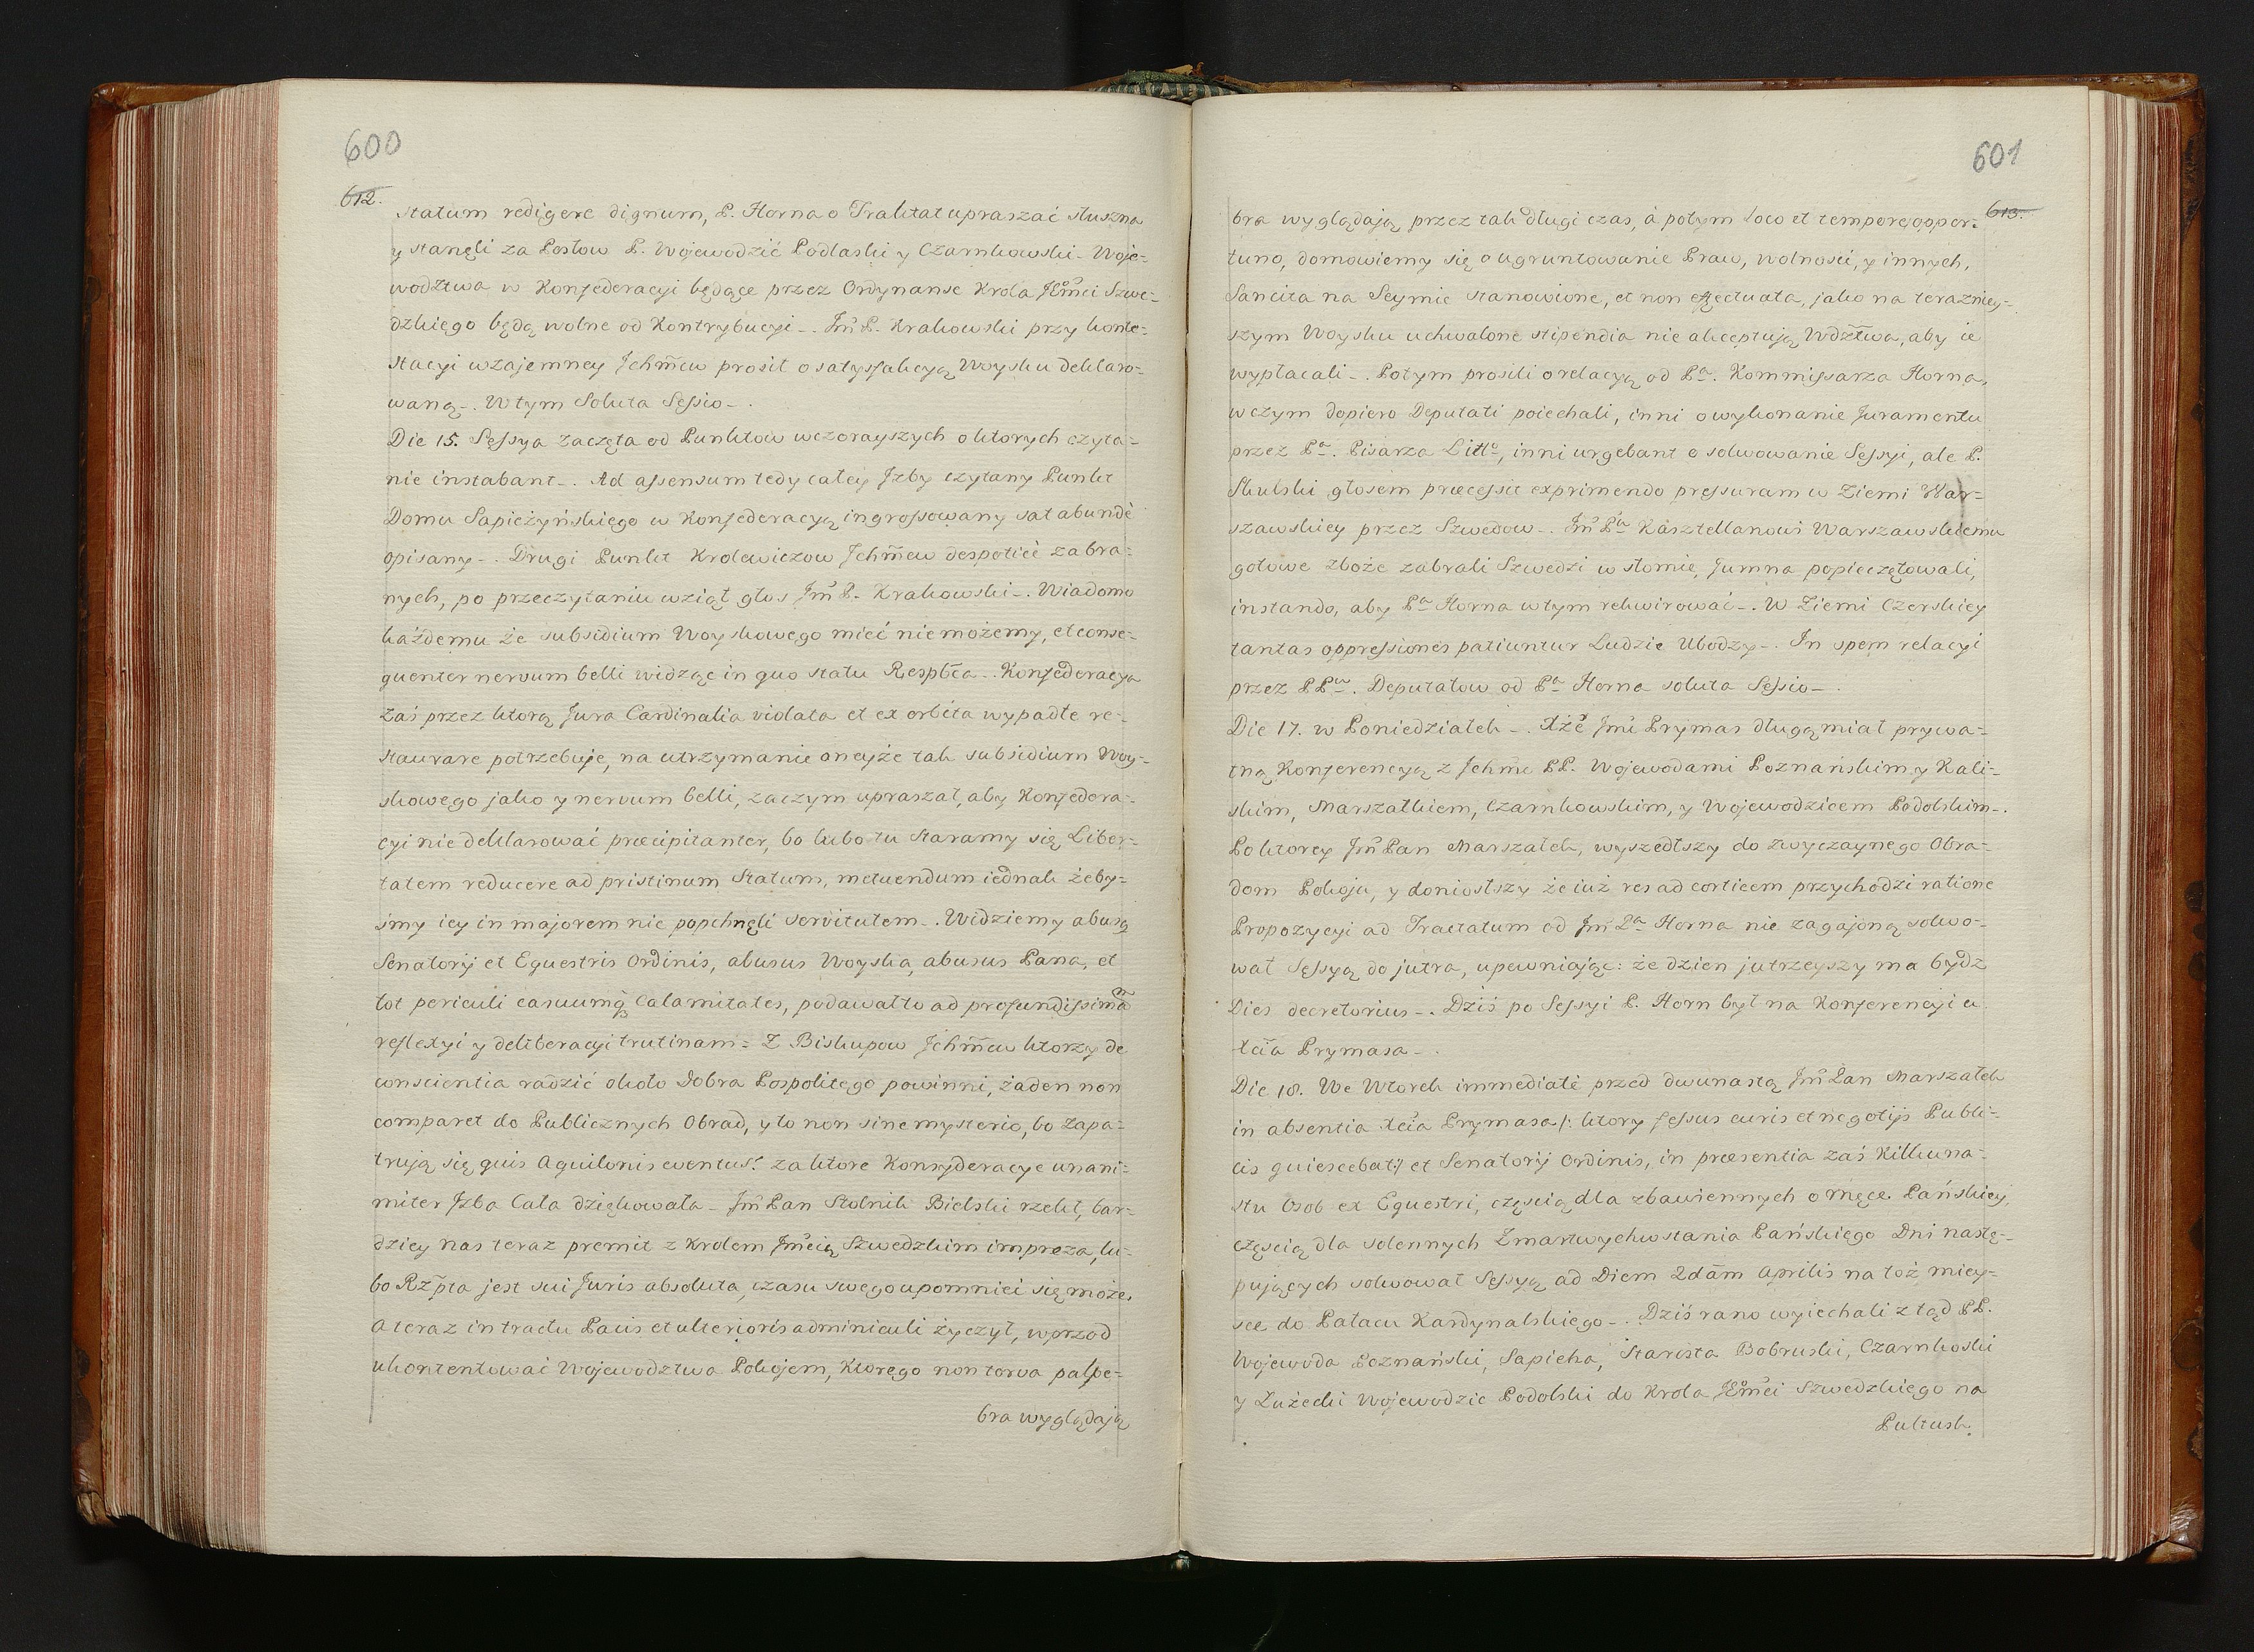 600
612.
statum redigere dignum, P. Horna o Traktat upraszać słuszna
y stanęli za Posłow P. Wojewodzić Podlaski y Czarnkowski - Woje-
wodztwa w Konfederacyi będące przez Ordynanse Krola JEmci Szwe-
dzkiego będą wolne od Kontrybucyi -. Jm̃ P. Krakowski przy konte-
stacyi wzajemney Jchm̃ciow prosił o satysfakcyą Woysku deklaro-
waną -. W tym Soluta Sessio -.
Die 15. Sessya zaczęta od Punktow wczorayszych o ktorych czyta-
nie instabant -. Ad assensum tedy całey Jzby czytany Punkt
Domu Sapieżyńskiego w Konfederacyą ingrossowany sat abundè
opisany -. Drugi Punkt Krolewiczow Jchm̃ciow despoticè zabra-
nych, po przeczytaniu wziął głos Jm̃ P. Krakowski -. Wiadomo
każdemu że subsidium Woyskowego mieć nie możemy, et conse-
quenter nervum belli widząc in quo statu Respbca -. Konfederacya
zaś przez ktorą Jura Cardinalia violata et ex orbita wypadłe re-
staurare potrzebuje, na utrzymanie oneyże tak subsidium Woy-
skowego jako y nervum belli, zaczym upraszał, aby Konfedera-
cyi nie deklarować præcipitanter, bo lubo tu staramy się Liber-
tatem reducere ad pristinum Statum, metuendum iednak żeby-
śmy iey in majorem nie popchnęli servitutem -. Widziemy abusą
Senatorij et Equestris Ordinis, abusus Woyska, abusus Pana, et
tot periculi casuumq̨ Calamitates, podawał to ad profundissimã
reflexyi y deliberacyi trutinam - Z Biskupow Jchm̃ciow ktorzy de
conscientia radzić około Dobra Pospolitego powinni, żaden non
comparet do Publicznych Obrad, y to non sine mysterio, bo zapa-
trują się quis Aquilonis eventus. za ktore Konsyderacye unani-
miter Jzba Cała dziękowała - Jm̃ Pan Stolnik Bielski rzekł, bar-
dziey nas teraz premit z Krolem Jm̃cią Szwedzkim impreza, lu-
bo Rz̃pta jest sui Juris absoluta, czasu swego upomnieć się może,
A teraz in tractu Pacis et ulterioris adminiculi życzył, wprzod
ukontentować Wojewodztwa Pokojem, Ktorego non torva palpe-
bra wyglądają
601
613.
bra wyglądają przez tak długi czas, à potym loco et tempore oppor-
tuno, domowiemy się o ugruntowanie Praw, wolności, y innych,
Sancita na Seymie stanowione, et non effectuata, jako na teraźniey-
szym Woysku uchwalone stipendia nie akceptują Wdztwa, aby ie
wypłacali -. Potym prosili o relacyą od Pa. Kommissarza Horna,
w czym dopiero Deputati poiechali, inni o wykonanie Juramentu
przez Pa. Pisarza Litto, inni urgebant o solwowanie Sessyi, ale P.
Skulski głosem præcessit exprimendo pressuram w Ziemi War-
szawskiey przez Szwedow -. Jm̃ Pa Kasztellanowi Warszawskiemu
gotowe zboże zabrali Szwedzi w słomie, Jumna popieczętowali,
instando, aby Pa Horna w tym rekwirować -. W Ziemi Czerskiey
tantas oppressiones patiuntur Ludzie Ubodzy -. In spem relacyi
przez PPw. Deputatow od Pa Horna soluta Sessio -.
Die 17. w Poniedziałek -. Xże Jm̃ Prymas długą miał prywa-
tną Konferencyą z Jchmc PP. Wojewodami Poznańskim y Kali-
skim, Marszałkiem, Czarnkowskim, y Wojewodzicem Podolskim -.
Po ktorey Jm̃ Pan Marszałek, wyszedłszy do zwyczaynego Obra-
dom Pokoju, y doniosłszy że iuż res ad corticem przychodzi ratione
Propozycyi ad Tractatum od Jm̃ Pa Horna nie zagajoną solwo-
wał Sessyą do jutra, upewniając: że dzien jutrzeyszy ma bydz
Dies decretorius -. Dziś po Sessyi P. Horn był na Konferencyi u
Xcia Prymasa -.
Die 18. We Wtorek immediatè przed dwunastą Jm̃ Pan Marszałek
in absentia Xcia Prymasa /: ktory fessus curis et negotijs Publi-
cis quiescebat :/ et Senatorij Ordinis, in præsentia zaś Kilkuna-
stu Osob ex Equestri, częścią dla zbawiennych o Męce Pańskiey,
częścią dla solennych Zmartwychwstania Pańskiego Dni nastę-
pujących solwował Sessyą ad Diem 2dam Aprilis na toż miey-
sce do Pałacu Kardynalskiego -. Dziś rano wyiechali z tąd PP.
Wojewoda Poznański, Sapieha, Starosta Bobruski, Czarnkoski
y Zużecki Wojewodzic Podolski do Krola JEmci Szwedzkiego na
Pułtusk.